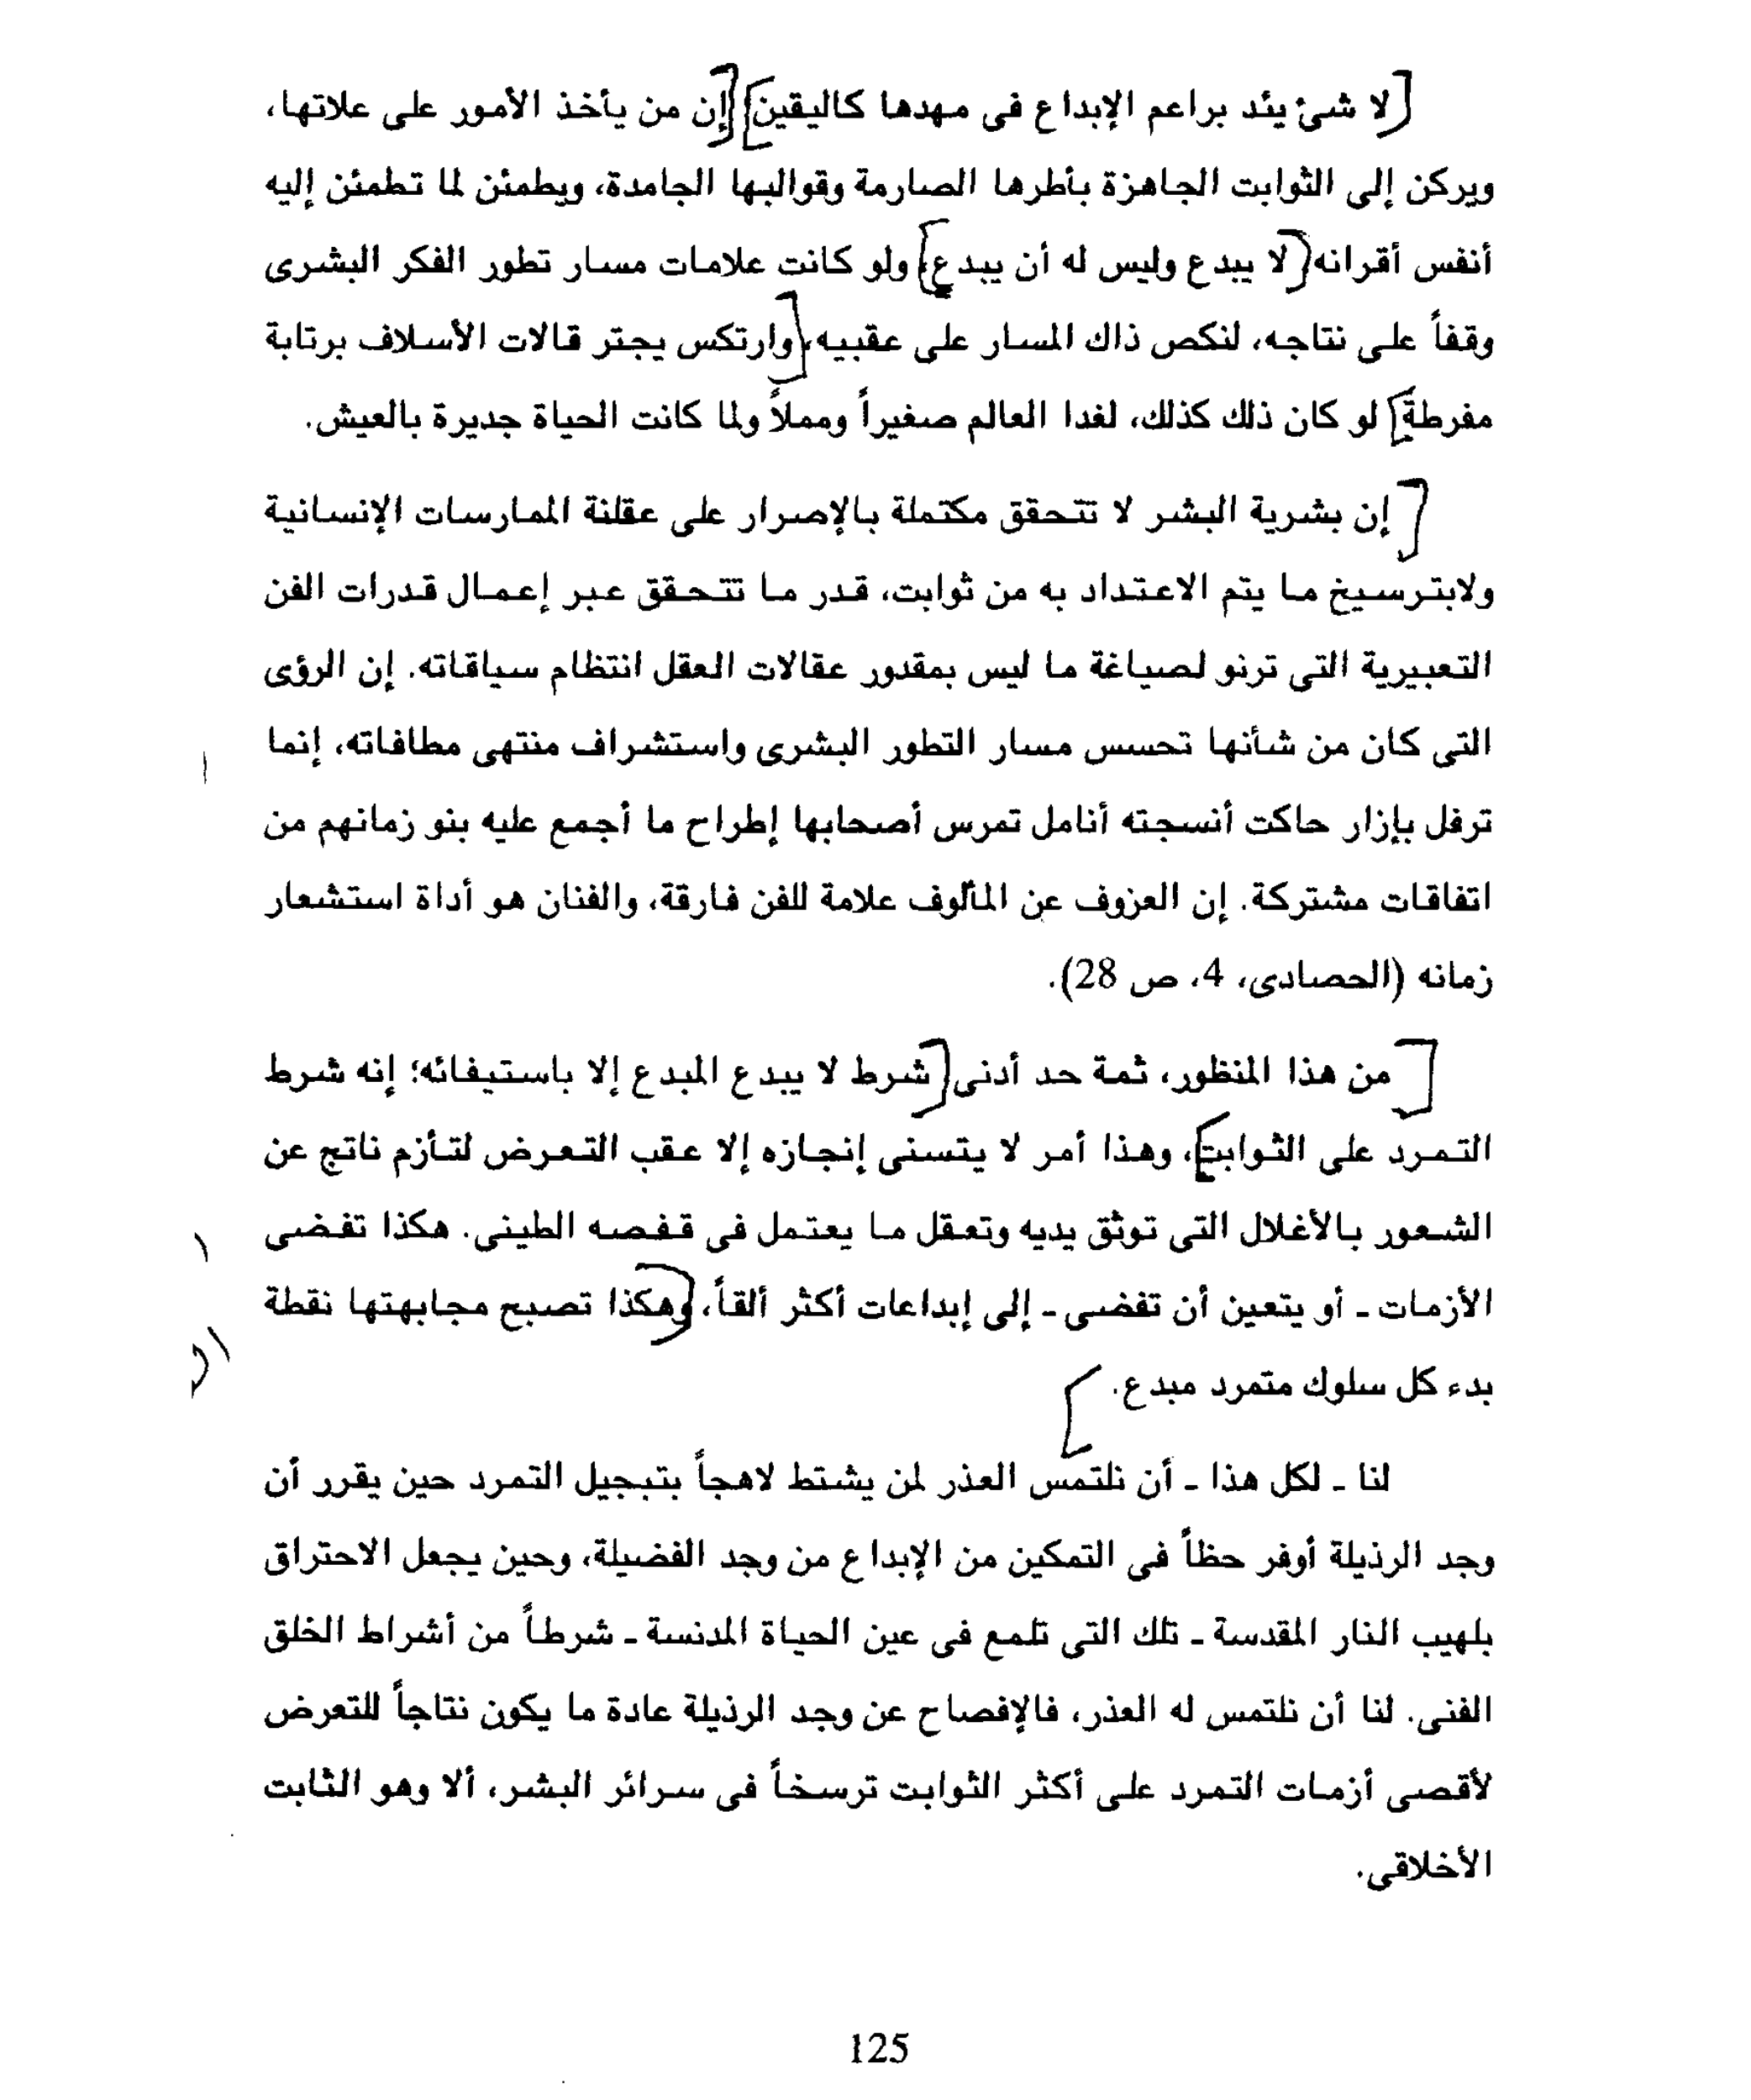 لا شىء يئد براعم الإبداع فى مهدها كاليقين إن من يأخذ الأمور على علاتها،
ويركن إلى الثوابت الجاهزة بأطرها الصارمة وقوالبها الجامدة، ويطمئن لما تطمئن إليه
أنفس أقرانه لا يبدع وليس له أن يبدع، ولو كانت علامات مسار تطور الفكر البشرى
وقفاً على نتاجه، لنكص ذاك المسار على عقبيه، وارتكس يجتر قالات الأسلاف برتابة
مفرطة، لو كان ذلك كذلك، لغدا العالم صغيراً ومملاً ولما كانت الحياة جديرة بالعيش.
إن بشرية البشر لا تتحقق مكتملة بالإصرار على عقلنة الممارسات الإنسانية
ولابترسيخ ما يتم الاعتداد به من ثوابت، قدر ما تتحقق عبر إعمال قدرات الفن
التعبيرية التى ترنو لصياغة ما ليس بمقدور عقالات العقل انتظام سياقاته. إن الرؤى
التى كان من شأنها تحسس مسار التطور البشرى واستشراف منتهى مطافاته، إنما
ترفل بإزار حاكت أنسجته أنامل تمرس أصحابها إطراح ما أجمع عليه بنو زمانهم من
اتفاقات مشتركة. إن العزوف عن المألوف علامة للفن فارقة، والفنان هو أداة استشعار
زمانه (الحصادى، 4، ص 28).
من هذا المنظور، ثمة حد أدنى شرط لا يبدع المبدع إلا باستيفائه؛ إنه شرط
التمرد على الثوابت، وهذا أمر لا يتسنى إنجازه إلا عقب التعرض لتأزم ناتج عن
الشعور بالأغلال التى توثق يديه وتعقل ما يعتمل فى قفصه الطينى. هكذا تفضى
الأزمات - أو يتعين أن تفضى - إلى إبداعات أكثر ألقاً، وهكذا تصبح مجابهتها نقطة
بدء كل سلوك متمرد مبدع.
لنا - لكل هذا - أن نلتمس العذر لمن يشتط لاهجاً بتبجيل التمرد حين يقرر أن
وجد الرذيلة أوفر حظاً فى التمكين من الإبداع من وجد الفضيلة، وحين يجعل الاحتراق
بلهيب النار المقدسة - تلك التى تلمع فى عين الحياة المدنسة - شرطاً من أشراط الخلق
الفنى. لنا أن نلتمس له العذر، فالإفصاح عن وجد الرذيلة عادة ما يكون نتاجاً للتعرض
لأقصى أزمات التمرد على أكثر الثوابت ترسخاً فى سرائر البشر، ألا وهو الثابت
الأخلاقى.
125